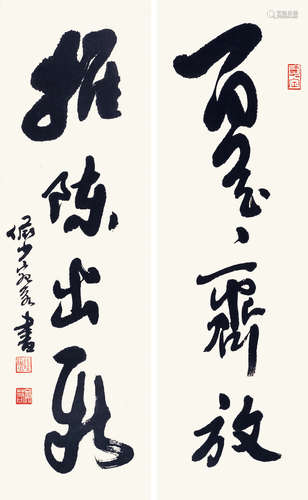 百花齐放
推陈出新
书